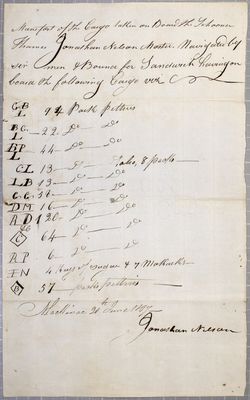 Manifest of the Cargo taken on Board the Schooner
Thames Jonathan Nelson Master Navigated by
six men & Bound for Sandwich having on
board the following Cargo viz
GB
L 94 Pack Peltries
BG
L 22 Do Do
BP
L 44 Do Do
CL 13
LB 13 Do Do
CG 36 Do Do
DM 16 Do Do
AD 120 Do Do
C 64 Do Do
RP 6 Do Do
FN 4 Kegs of Sugar & 7 Mokucks
B 57 packs peltries
Mackinac 20th June
Jonathan Nelson